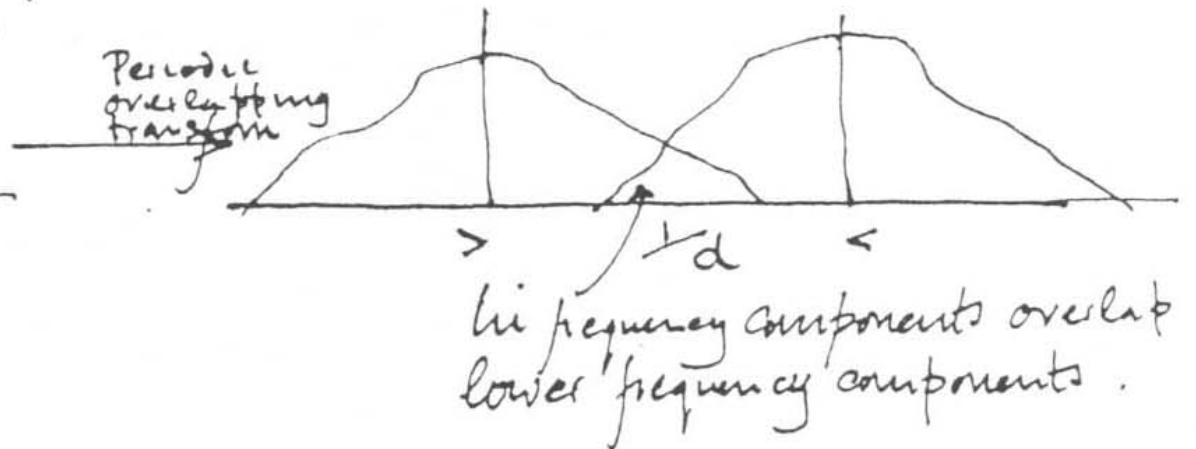 Periodic
overlapping
transform
> 1/d <
hi frequency components overlap
lower frequency components.